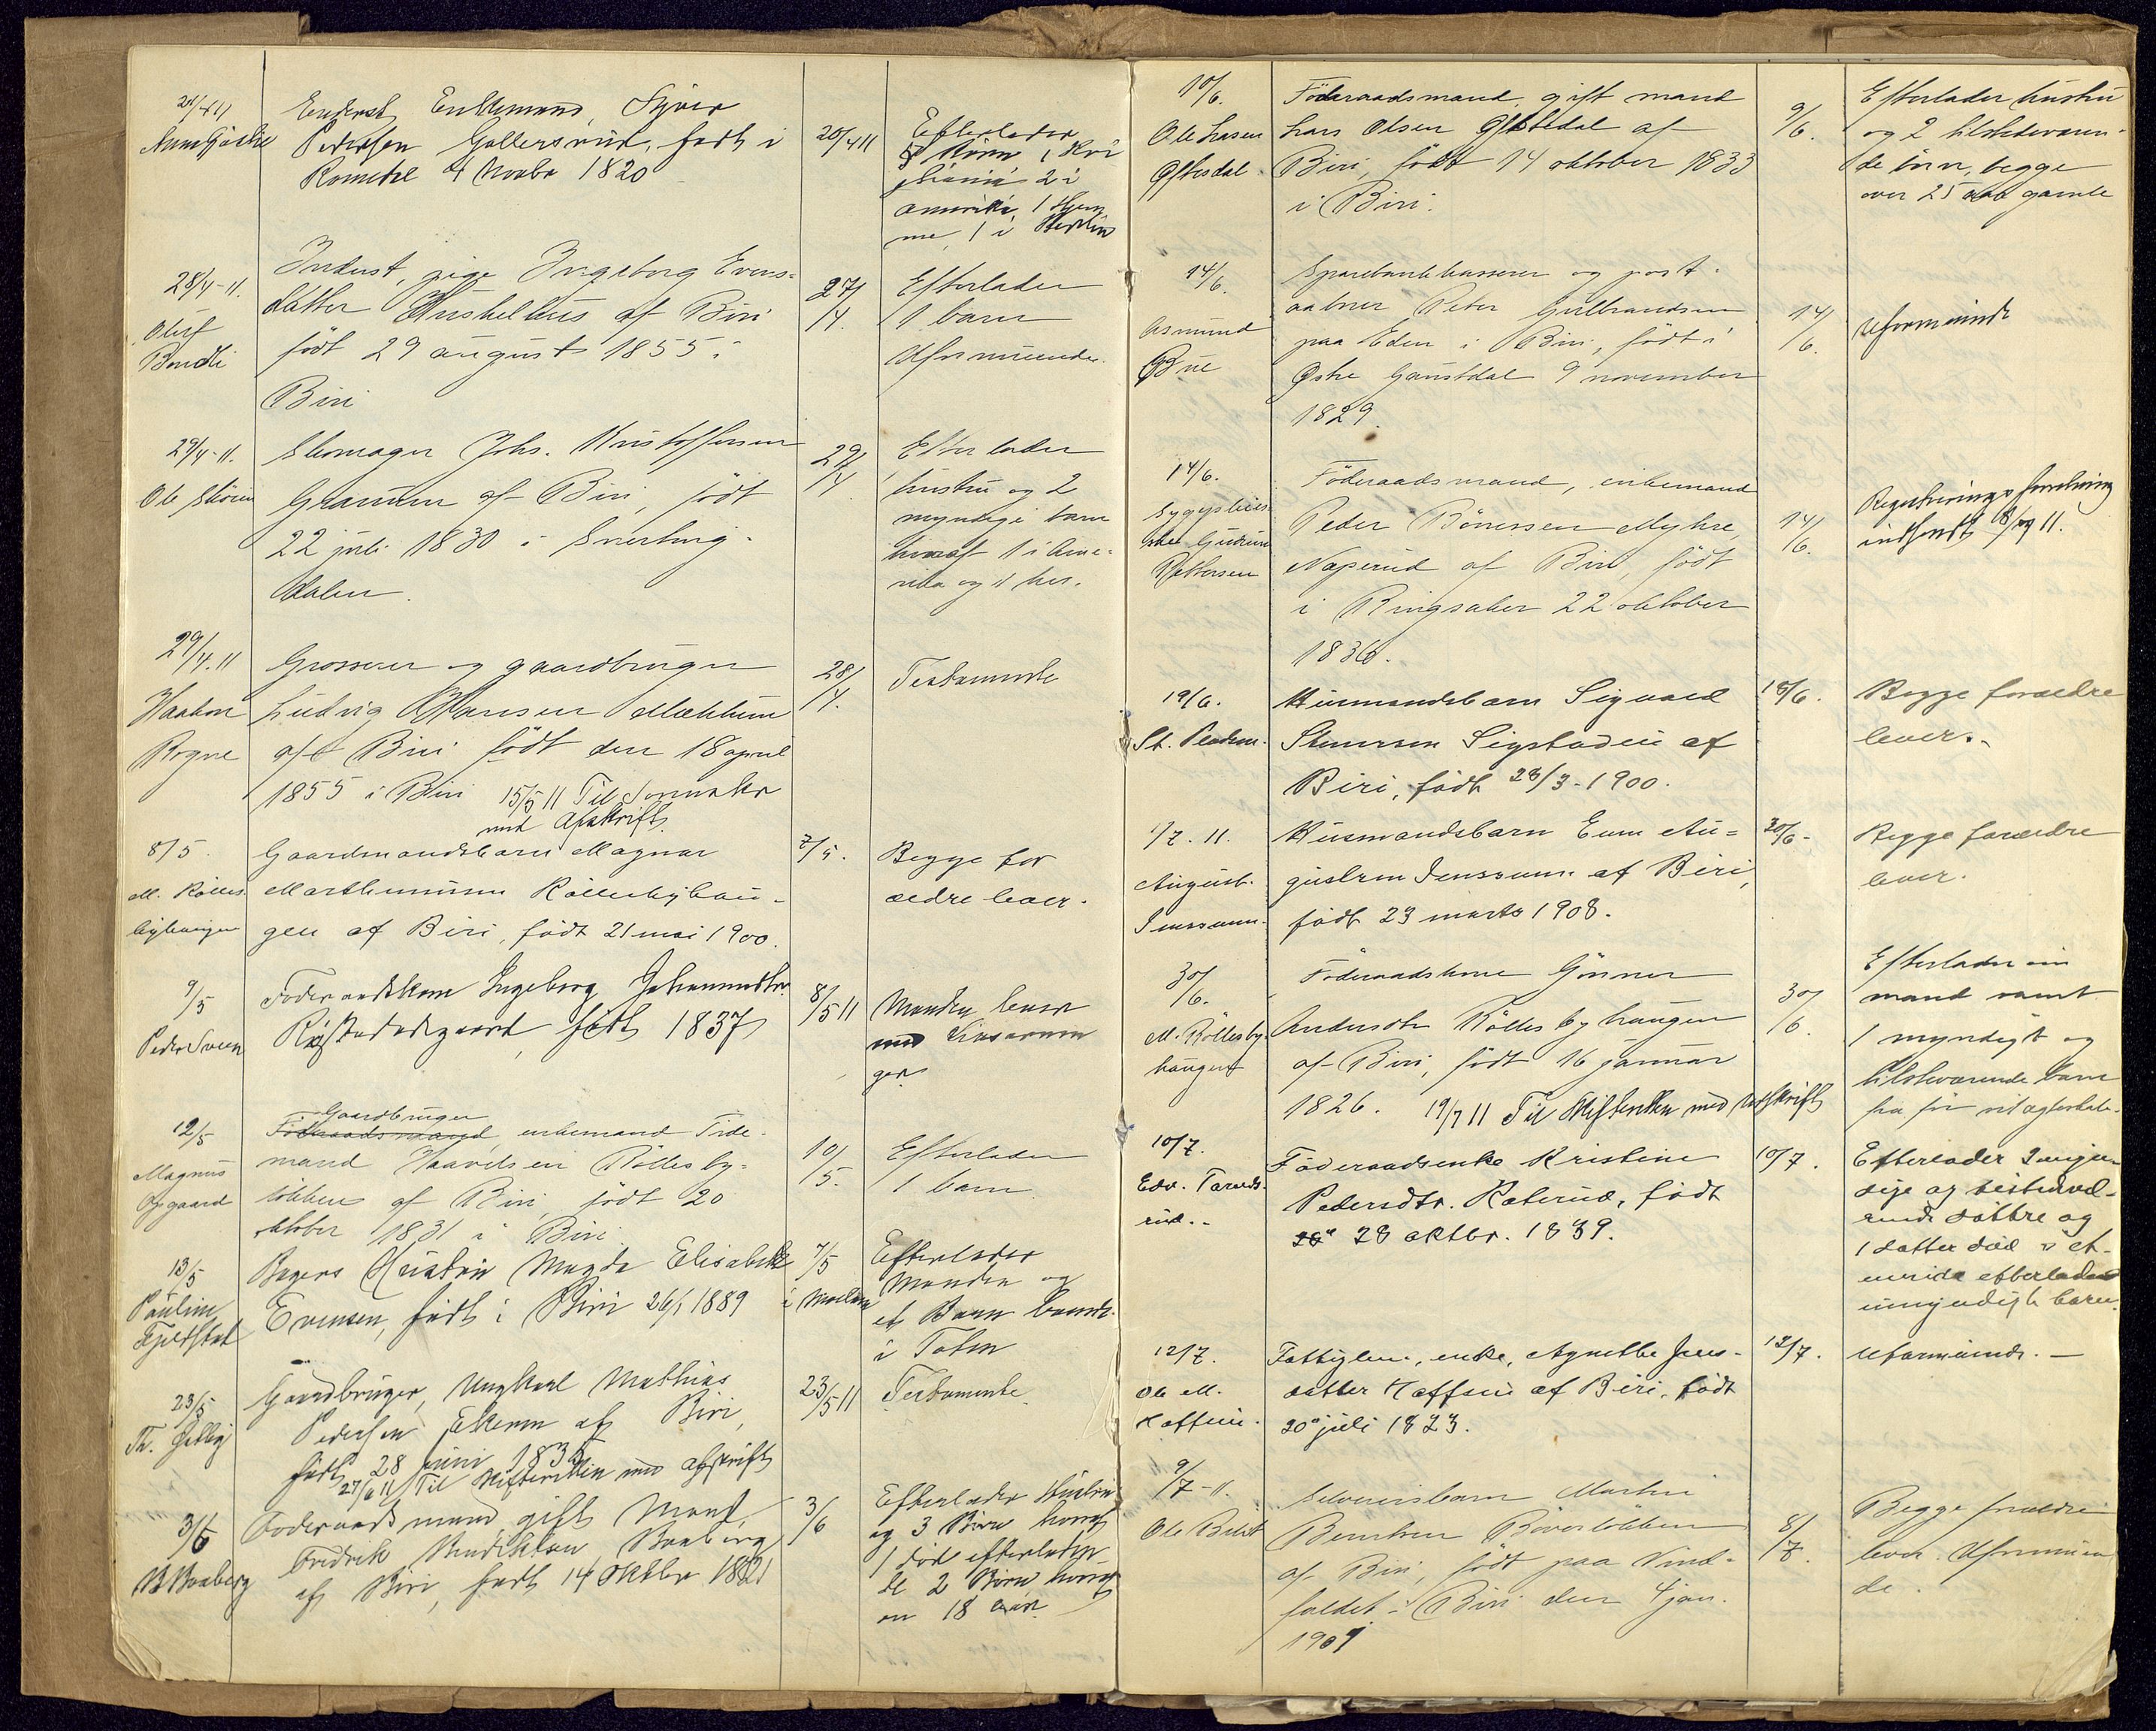 20/4 11
Enderst, Enkemand, Syver
Pedersen Gollersrud, født i
Romedal 4 Novbr 1820
20/4 11
Efterlader
Børn i Kri
stiania 2 i
Amerika, 1 hjem
me, 1 i
28/4-11.
Oluf
Bondli
Inderst, pige Ingeborg Evens-
datter Huskelhus af Biri
født 29 august 1855 i
Biri
27/4.
Efterlader
1 barn
Uformuende.
29/4-11.
Ole Skoien
Skomager Johs. Kristoffersen
Gramm af Biri, født
22 juli 1830 i Snerting-
dalen.
29/4.
Efterlader
hustru og 2
myndige barn
hvoraf 1 i Ame-
rika og 1 her.
29/4.11
Haakon
Rogne
Grosserer og gaardbruger
Ludvig Hansen Mækkum
af Biri født den 18 april
1855 i Biri 15/5 11 Til
med Afskrift.
28/4.
Testamente
8/5
M. Rølles
byhaugen
Gaardmandsbarn Magnar
Marthinussen Røllesbyhau-
gen af Biri, født 21 mai 1900.
7/5.
Begge for
ældre lever.
9/5
Peder Sveen
Føderaadskone Ingeborg Johannesdtr.
født 1837
8/5 11
Manden lever
12/5
Magnus
Opgaard
Gaardbruger
Føderaadsmand, enkemand Tide-
mand Haavelsen Røllesby-
løkken af Biri, født 20
oktober 1831 i Biri
10/5.
Efterlader
1 barn
13/5
Pauline
Fjeldstad
Bagers Hustru Magda Elisabeth
Evensen, født i Biri 26/1 1889
7/5
i Moelven
Efterlader
Manden og
et Barn
i Toten
23/5
Gaardbruger, Ungkarl Mathias
Pedersen Ekeren af Biri,
født 28 juni 1835
27/6 11 Til Skifteretten med afskrift
23/5 11
Testamente.
3/6
B Braaberg
Føderaadsmand gift Mand,
Fredrik Bendiktsen Braaberg
af Biri, født 14 Oktbr 1821
3/6
Efterlader Hustru
og 3 Børn hvoraf
1 død efterladen
de 2 Børn, hvoraf
en 18 aar
10/6.
Ole Larsen
Øfstedal
Føderaadsmand, gift mand
Lars Olsen Øfstedal af
Biri, født 14 oktober 1833
i Biri.
9/6.
Efterlader hustru
og 2 tilstedeværen-
de børn, begge
over 25 aar gamle
14/6.
Asmund
Bue
Sparebankkasserer og post-
aabner Peter Gulbrandsen
paa Eden i Biri, født i
Østre Gausdal 9 november
1829.
14/6.
Uformuende
14/6.
Sygepleier-
ske Gudrun
Pettersen
Føderaadsmand, enkemand
Peder Børresen Myhre,
Naperud af Biri, født
i Ringsaker 22 oktober
1836.
14/6.
Registreringsforretning
indsendt 8/7 11.
19/6.
St. Pedersen.
Husmandsbarn Sigvard
Stenersen Sigstadeie af
Biri, født 28/3-1900.
18/6.
Begge forældre
lever.
1/7.11.
August.
Jenssen.
Husmandsbarn Enm Au-
gustsen Jenssen af Biri,
født 23 marts 1908.
30/6-
Begge forældre
lever.
30/6.
M. Røllesby-
haugen
Føderaadskone Gønner
Andersdtr. Røllesbyhaugen
af Biri, født 16 januar
1826. 19/7 11 Til Skifteretten med Udskrift
30/6.
Efterlader sin
mand samt
1 myndigt og
tilstedeværende barn
fra før
10/7.
Edv. Tareds-
rud.-
Føderaadsenke Kristine
Pedersdtr. Raterud, født
28 oktbr. 1839.
10/7.
Efterlader 2 myn-
dige og tilstedevæ-
rende døttre og
1 datter død i A-
merika efterladende
umyndigt barn.
12/7.
Ole M.
Haffsen.
Fattiglem, enke, Agnethe Jens-
datter Haffsen af Biri, født
20 juli 1823.
12/7.
Uformuende.
9/7-11.
Selveiersbarn Martin
Berntsen Røverløkken
af Biri, født paa Vind-
faldet i Biri den 4 jan.
1909
8/7.
Begge forældre
lever. Uformuen
de.